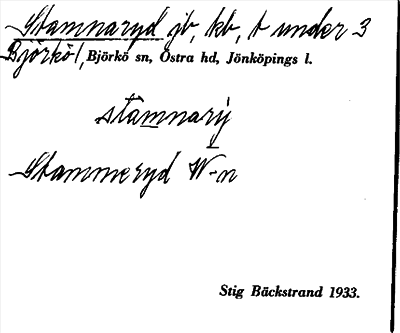 Stamnaryd jb, kb, t under 3
Björkö, Björkö sn, Östra hd, Jönköpings l.
stamnary
Stammeryd W-n
Stig Bäckstrand 1933.